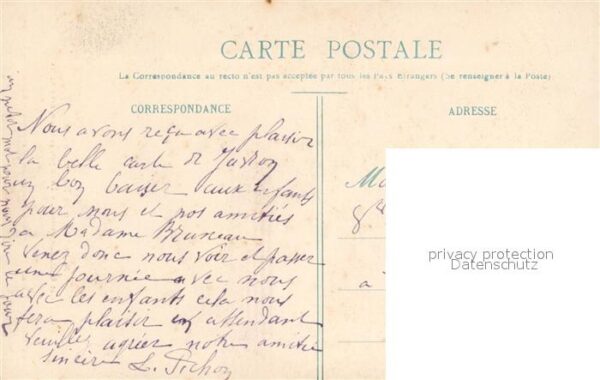 CARTE POSTALE
La Correspondance au recto n'est pas acceptée par tous les Pays Etrangers (Se renseigner à la Poste)
CORRESPONDANCE
ADRESSE
Nous avons reçu avec plaisir
la belle carte de
un bon baiser aux enfants
pour nous et nos amitiés
a Madame Bruneau
Venez donc nous voir et passer
une journée avec nous
avec les enfants cela nous
fera plaisir en attendant
veuillez agréer notre amitié
sincère L. Pichon
un petit mot pour nous dire le jour
a
privacy protection
Datenschutz